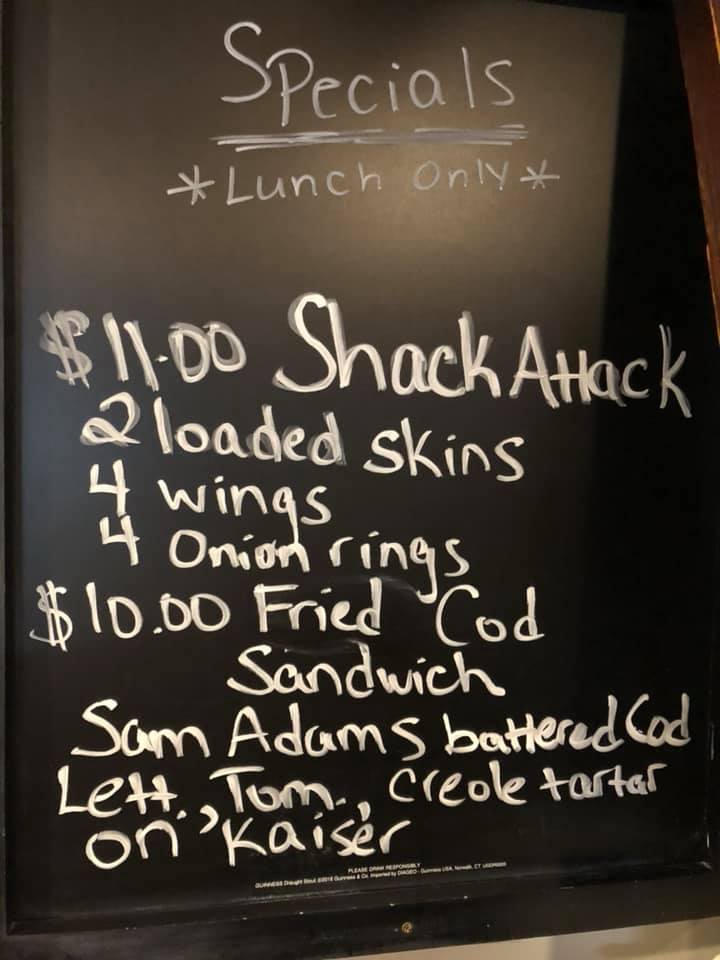 Specials
*Lunch Only*
$11.00 Shack Attack
2 loaded skins
4 wings
4 Onion rings
$10.00 Fried Cod
Sandwich
Sam Adams battered Cod
Lett., Tom., creole tartar
on Kaiser
PLEASE DRINK RESPONSIBLY
GUINNESS Draught Stout ©2016 Guinness & Co. Imported by DIAGEO - Guinness USA, Norwalk, CT